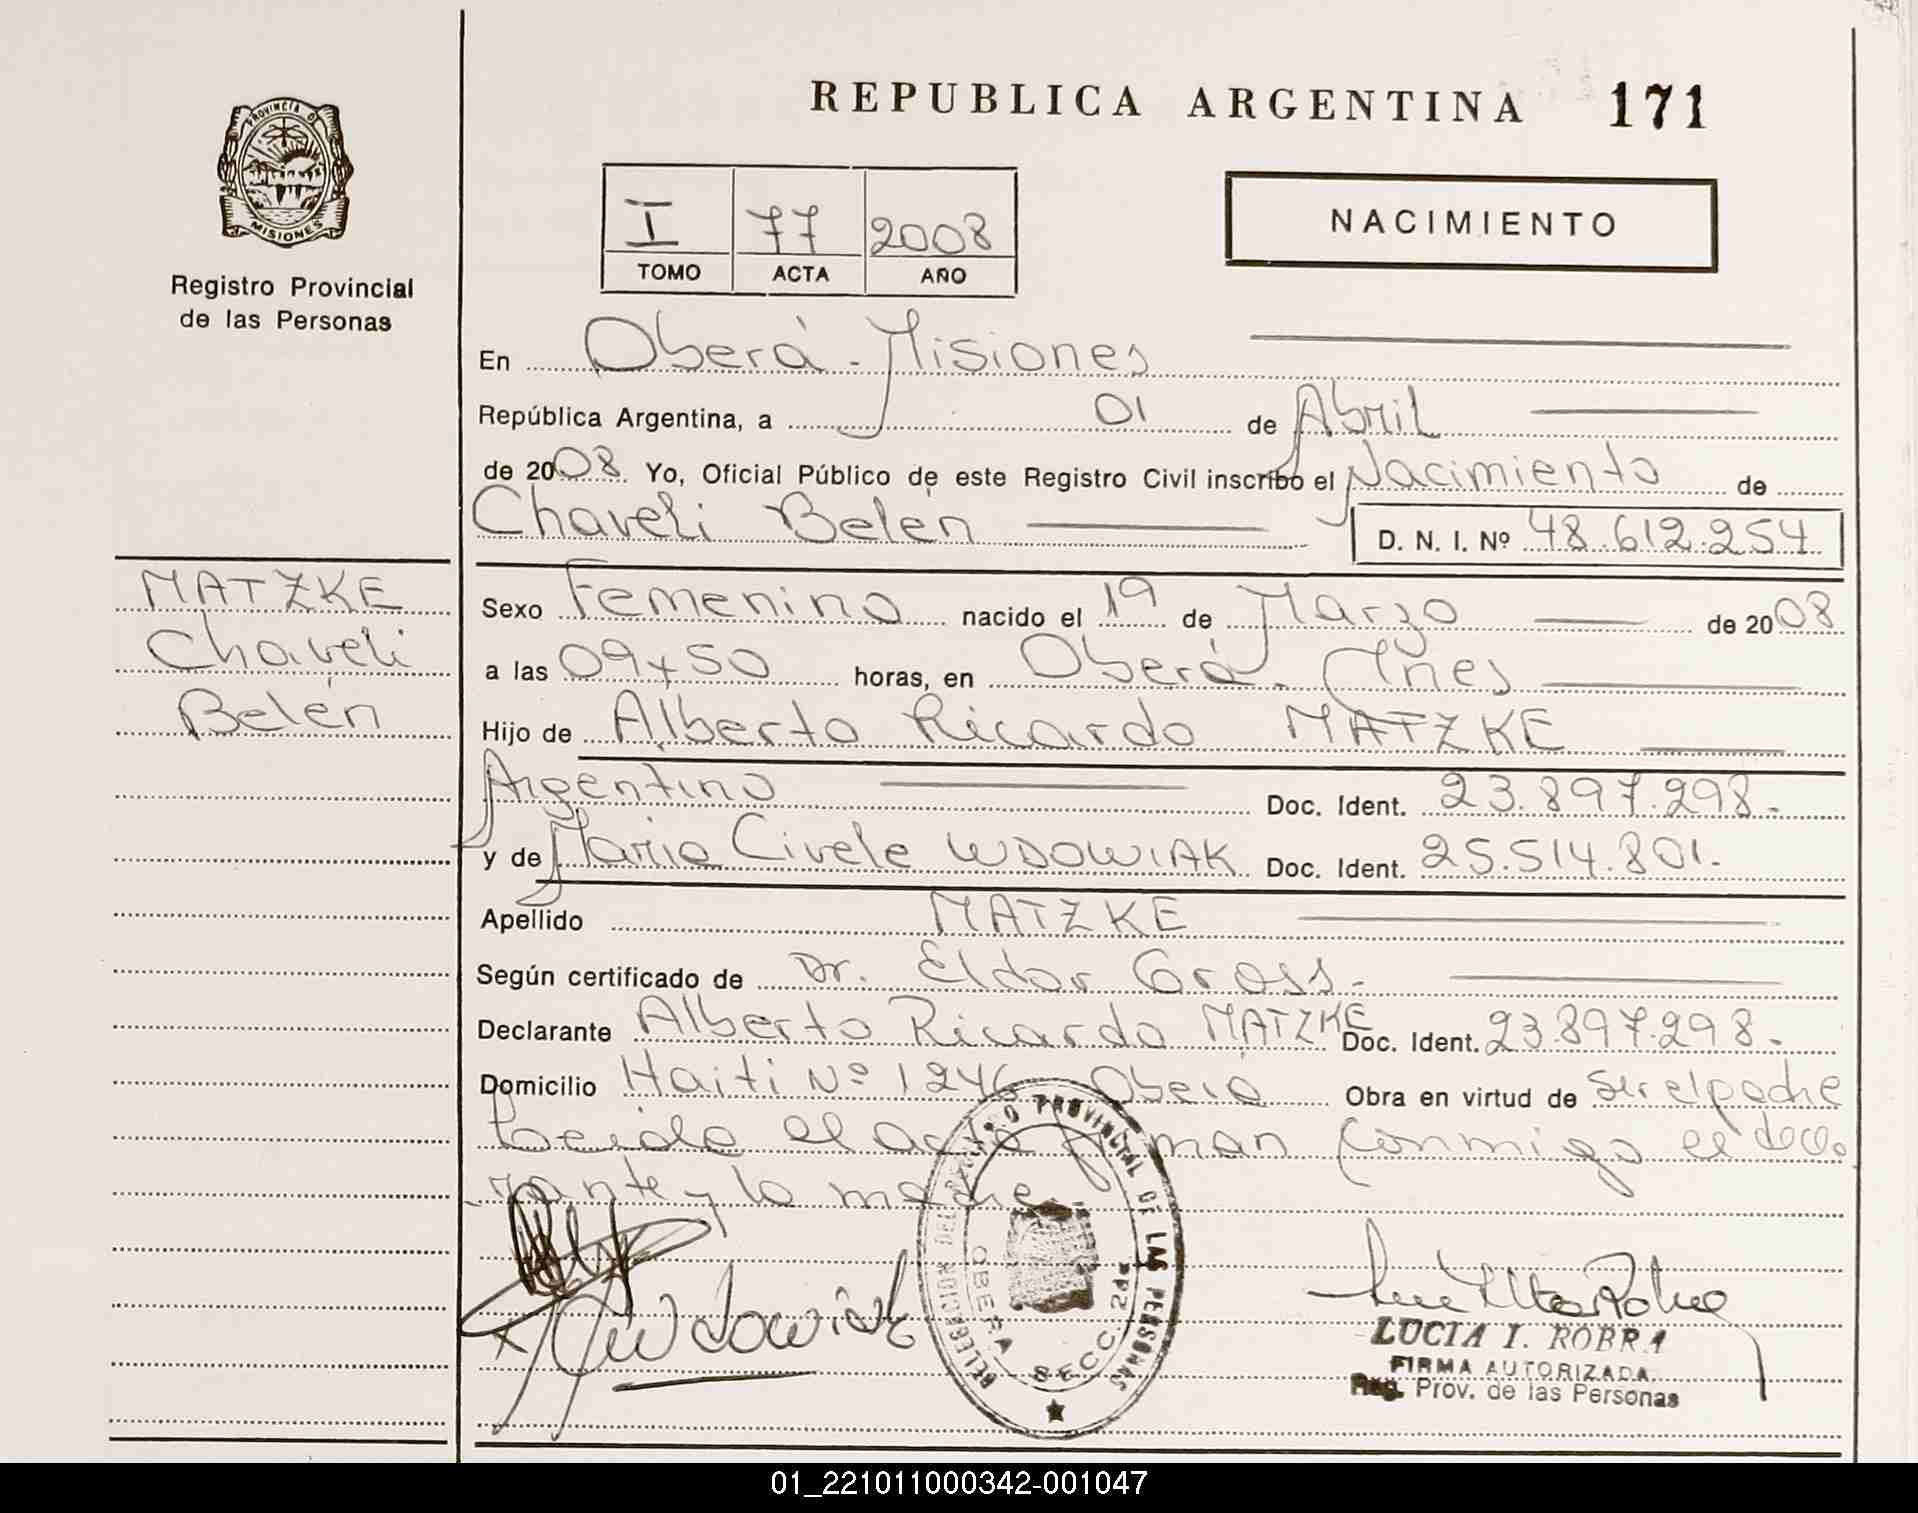 REPUBLICA ARGENTINA 171
PROVINCIA D
MISIONES
Registro Provincial
de las Personas
I 77 2008
TOMO ACTA AÑO
NACIMIENTO
En Oberá - Misiones
República Argentina, a 01 de Abril
de 2008 Yo, Oficial Público de este Registro Civil inscribo el Nacimiento de
Chaveli Belén D. N. I. Nº 48.612.254
MATZKE
Chaveli
Belén
Sexo Femenino nacido el 19 de Marzo de 2008
a las 09 y 50 horas, en Oberá - Mnes
Hijo de Alberto Ricardo MATZKE
Argentino Doc. Ident. 23.897.298.
y de Maria Civele WDOWIAK Doc. Ident. 25.514.801.
Apellido MATZKE
Según certificado de Dr. Eldor Gross.
Declarante Alberto Ricardo MATZKE Doc. Ident. 23.897.298.
Domicilio Haiti Nº 1246 Oberá Obra en virtud de ser el padre
Leida el acta firman conmigo el decla
rante y la madre
Wdowiak
DELEGACION DEL REGISTRO PROVINCIAL DE LAS PERSONAS
OBERA SECC. 2da
LUCIA I. ROBRA
FIRMA AUTORIZADA
Reg. Prov. de las Personas
01_221011000342-001047